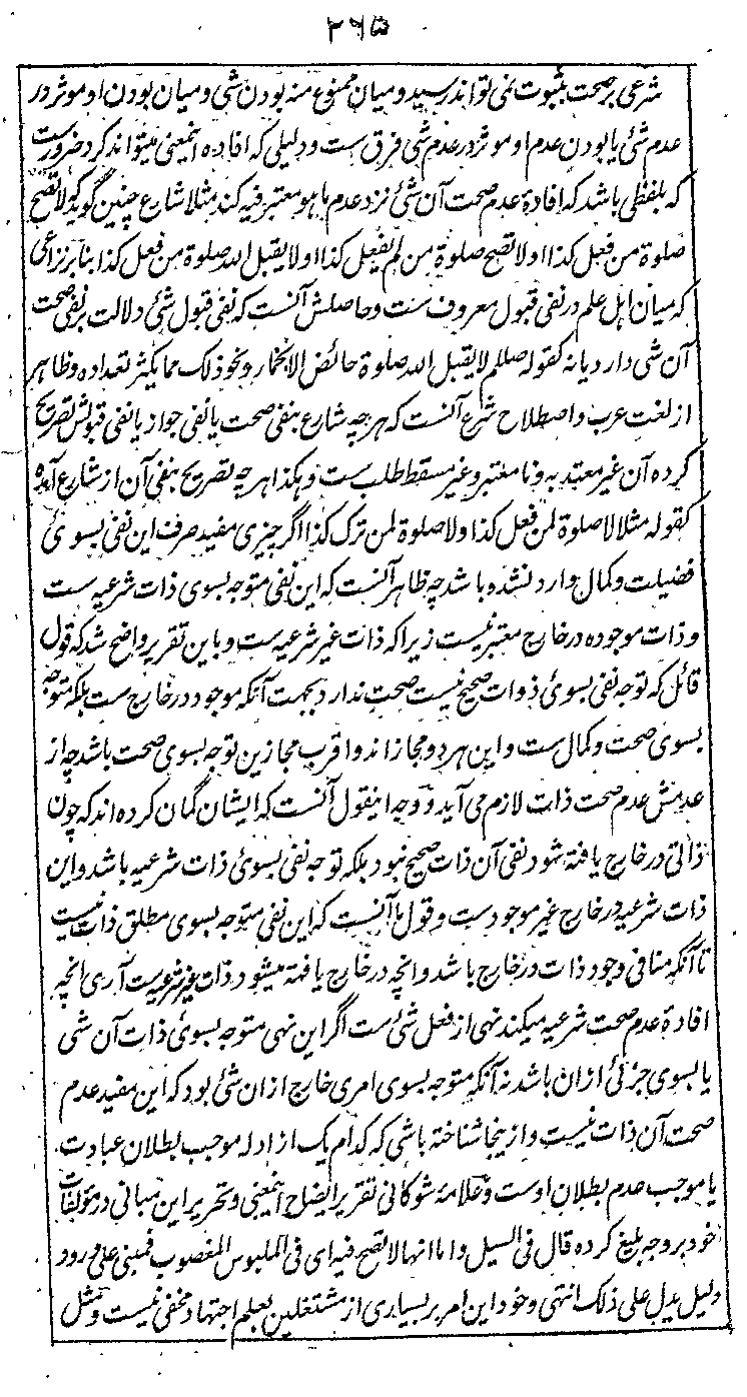 ۲۶۵
شرعی بر صحت بثبوت نمی تواند رسید و میان ممنوع منه بودن شی و میان بودن او موثر در
عدم شئ یا بودن عدم او موثر در عدم شی فرق ست و دلیلی که افاده اینمعنی میتواند کرد ضرورست
که بلفظی باشد که افادۀ عدم صحت آن شئ نزد عدم ما هو معتبر فیه کند مثلا شارع چنین گوید که لا تصح
صلوة من فعل کذا او لا تصح صلوة من لم یفعل کذا او لا یقبل الله صلوة من فعل کذا بنا بر نزاعی
که میان اهل علم در نفی قبول معروف ست و حاصلش آنست که نفی قبول شئ دلالت بر نفی صحت
آن شی دارد یا نه کقوله صللم لا یقبل الله صلوة حائض الا بخمار و نحو ذلک مما یکثر تعداده و ظاهر
از لغت عرب و اصطلاح شرع آنست که هر چه شارع بنفی صحت یا نفی جواز یا نفی قبولش تصریح
کرده آن غیر معتد به و نا معتبر و غیر مسقط طلب ست و هکذا هر چه تصریح بنفی آن از شارع آمده
کقوله مثلا لا صلوة لمن فعل کذا و لا صلوة لمن ترک کذا اگر چیزی مفید صرف این نفی بسوی
فضیلت و کمال وارد نشده باشد چه ظاهر آنست که این نفی متوجه بسوی ذات شرعیه ست
و ذات موجوده در خارج معتبر نیست زیرا که ذات غیر شرعیه ست و باین تقریر واضح شد که قول
قائل که توجه نفی بسوئ ذوات صحیح نیست صحت ندارد بجهت آنکه موجود در خارج ست بلکه متوجه
بسوی صحت و کمال ست و این هر دو مجاز اند و اقرب مجازین توجه بسوی صحت باشد چه از
عدمش عدم صحت ذات لازم می آید و وجه اینقول آنست که ایشان گمان کرده اند که چون
ذاتی در خارج یافته شود نفی آن ذات صحیح نبود بلکه توجه نفی بسوئ ذات شرعیه باشد و این
ذات شرعیه در خارج غیر موجودست و قول ما آنست که این نفی متوجه بسوی مطلق ذات نیست
تا آنکه منافی وجود ذات در خارج باشد و انچه در خارج یافته میشود ذات غیر شرعیست آری انچه
افادۀ عدم صحت شرعیه میکند نهی از فعل شئ ست اگر این نهی متوجه بسوئ ذات آن شی
یا بسوی جزئ ازان باشد نه آنکه متوجه بسوی امری خارج ازان شئ بود که این مفید عدم
صحت آن ذات نیست و ازینجا شناخته باشی که کدام یک از ادله موجب بطلان عبادت
یا موجب عدم بطلان اوست و علامۀ شوکانی تقریر ایضاح اینمعنی و تحریر این مبانی در مؤلفات
خود بر وجه بلیغ کرده قال فی السیل و اما انها لا تصح فیه ای فی الملبوس المغصوب فمبنی علی ورود
دلیل یدل علی ذلک انتهی و خود این امر بر بسیاری از مشتغلین بعلم اجتهاد مخفی نیست و مثل